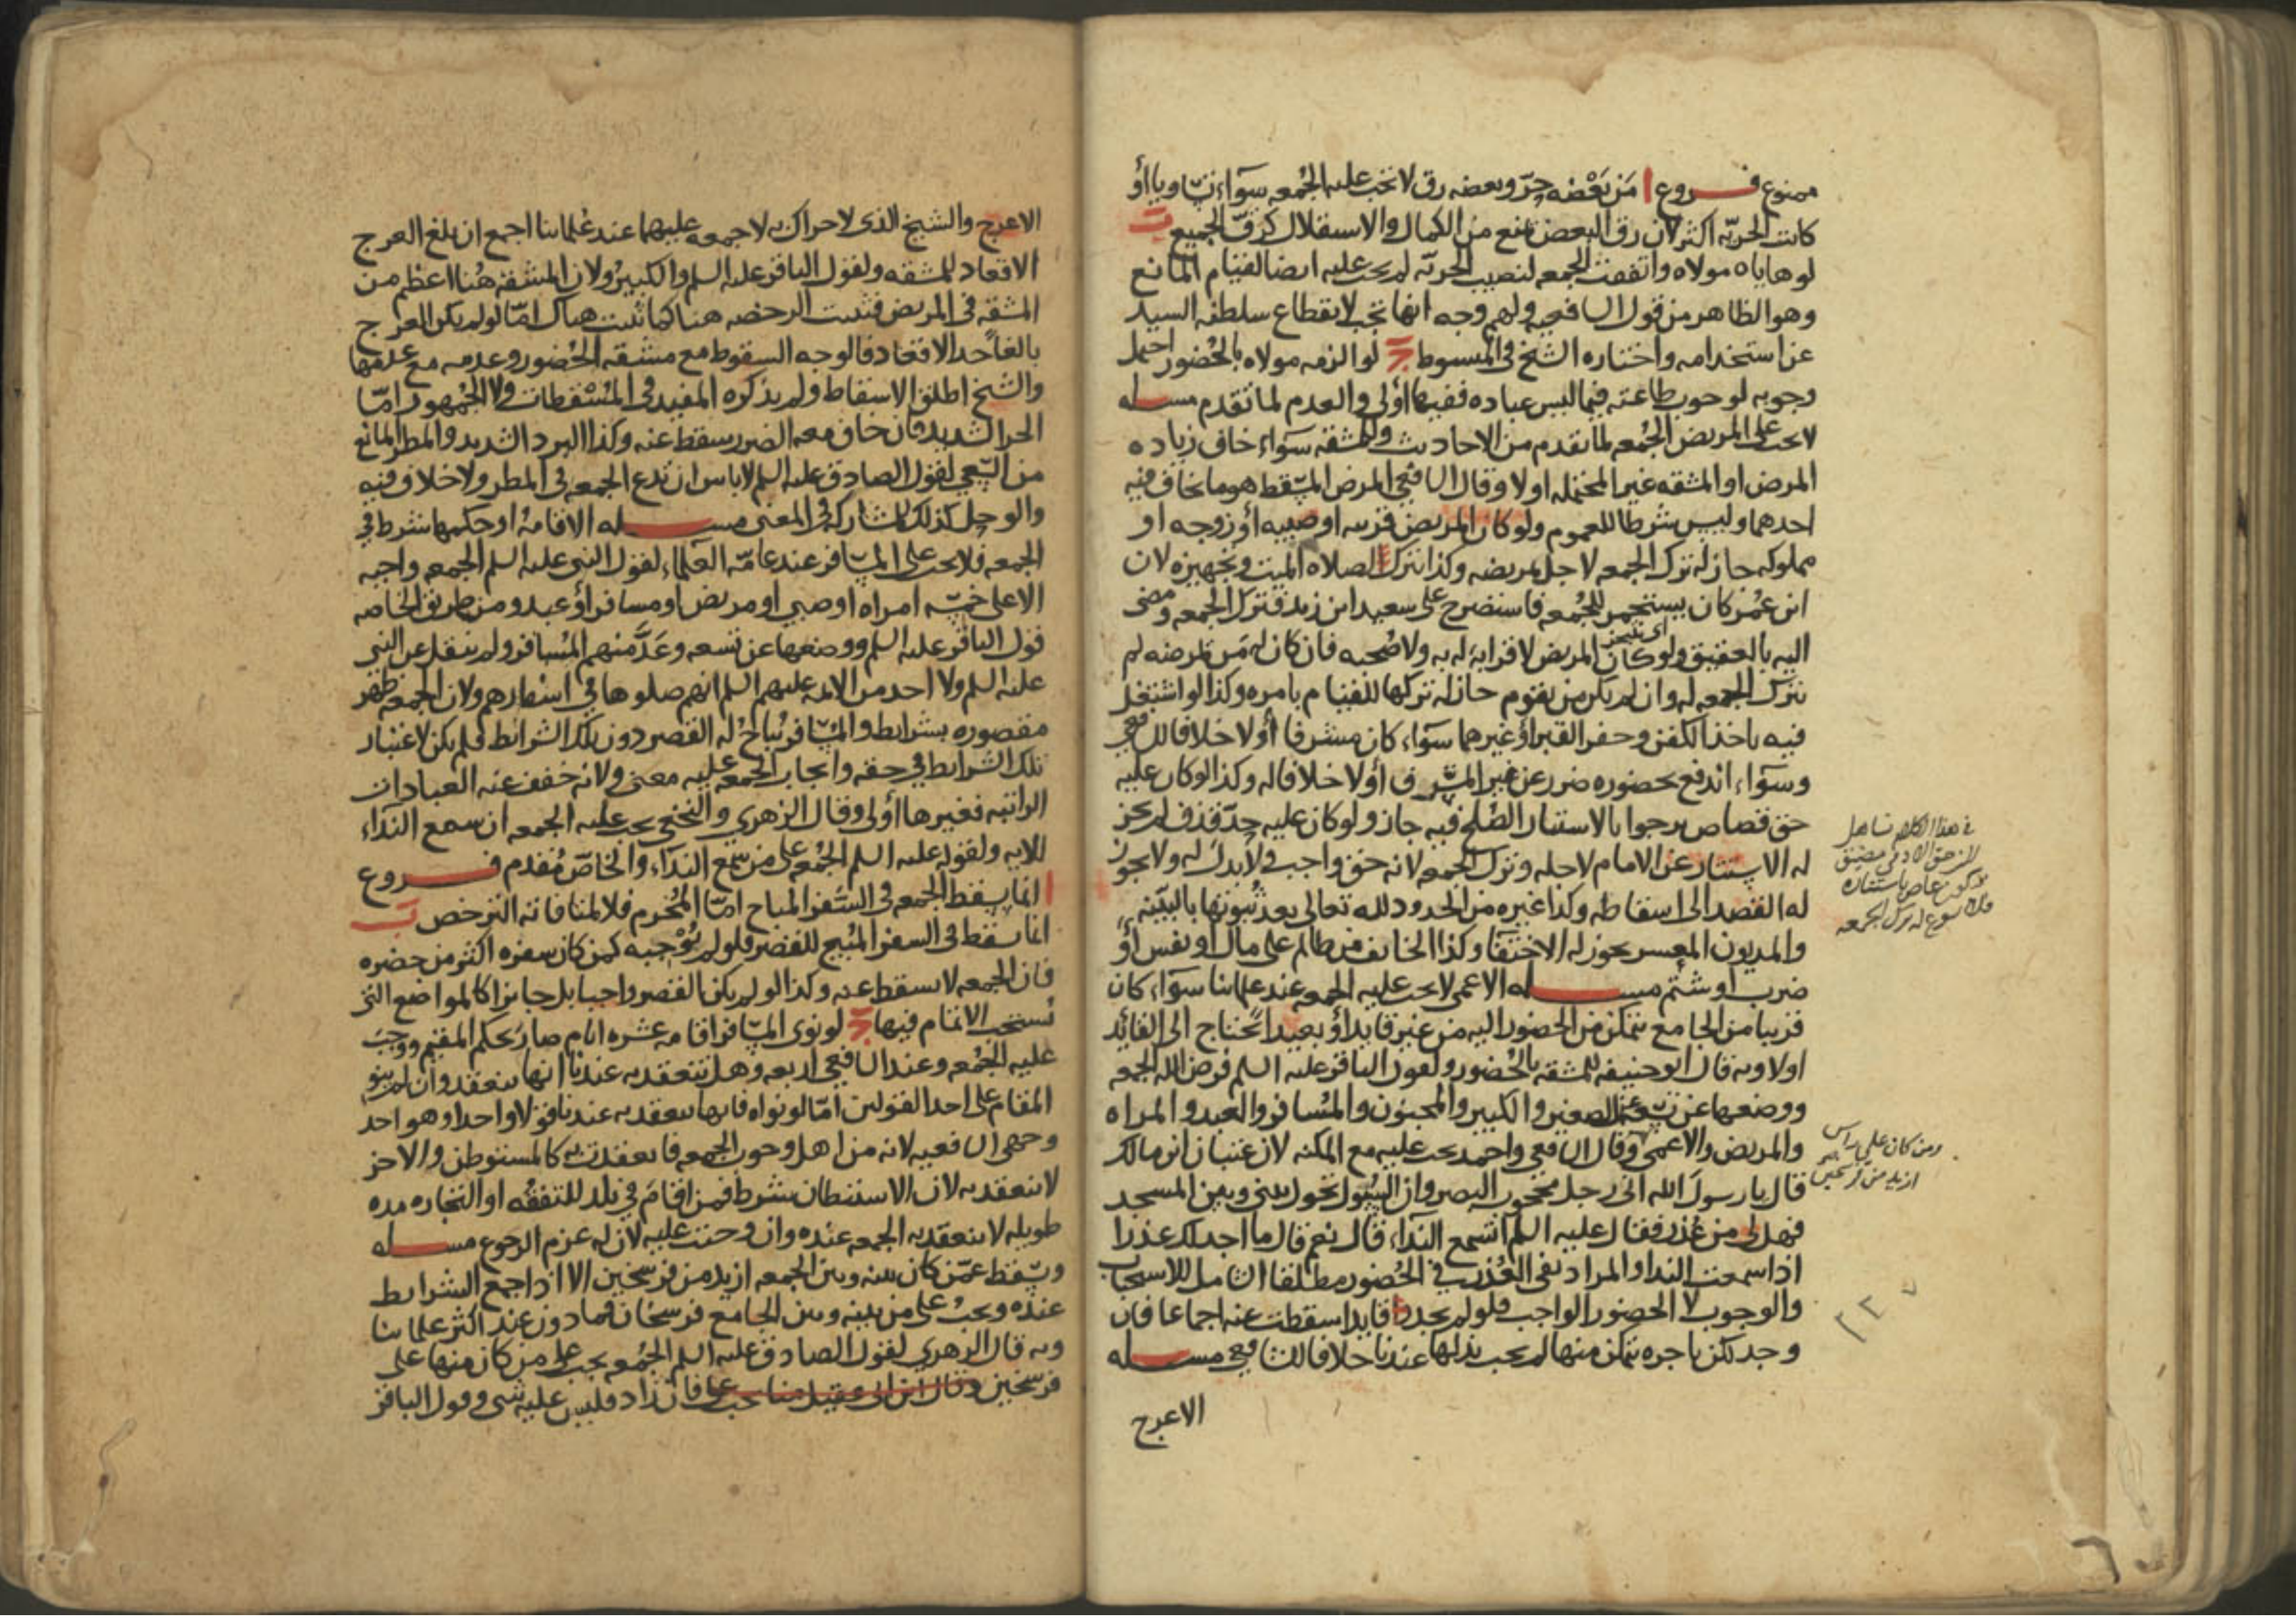 ممنوع فروع ا من بعضه حر وبعضه رق لا تجب عليه الجمعه سواء تساويا أو
كانت الحريه اكثر لان رق البعض يمنع من الكمال والاستقلال كرق الجميع ب
لو هاياه مولاه واتفقت الجمعه لنصيب الحريه لم يجب عليه ايضا لقيام المانع
وهو الظاهر من قول الشافعيه ولهم وجه انها تجب لانقطاع سلطنه السيد
عن استخدامه واختاره الشيخ في المبسوط ج لو الزمه مولاه بالحضور احتمل
وجوبه لوجوب طاعته فيما ليس عباده ففيها أولى والعدم لما تقدم مسله
لا تجب على المريض الجمعه لما تقدم من الاحاديث وللمشقه سواء خاف زياده
المرض او المشقه غير المحتمله اولا وقال الشافعي المرض المسقط هو ما يخاف فيه
احدهما وليس شرطا للعموم ولو كان المريض قريبه او صبيه أو زوجه او
مملوكه جاز له ترك الجمعه لاجل تمريضه وكذا يترك لصلاه الميت وتجهيزه لان
ابن عمر كان يستجمر للجمعه فاستصرخ على سعيد ابن زيد فترك الجمعه ومضى
اليه بالعقيق ولو كان المريض لا قرابه له به ولا صحبه فان كان له من يمرضه لم
يترك الجمعه له وان لم يكن من يقوم جاز له تركها للقيام بامره وكذا لو اشتغل
فيه باخذ الكفن وحفر القبر أو غيرهما سواء كان مشرفا أو لا خلافا للشافعي
وسواء اندفع بحضوره ضرر عن غير المشرف أو لا خلافا له وكذا لو كان عليه
حق قصاص يرجوا بالاستتار الصلح فيه جاز ولو كان عليه حد قذف لم يجز
له الاستتار عن الامام لاجله وترك الجمعه لانه حق واجب ولا بدل له ولا يجوز
له القصد الى اسقاطه وكذا غيره من الحدود لله تعالى بعد ثبوتها بالبينه
والمديون المعسر يجوز له الاختفا وكذا الخائف من ظالم على مال او نفس أو
ضرب او شتم مسله الاعمى لا تجب عليه الجمعه عند علمائنا سواء كان
قريبا من الجامع يتمكن من الحضور اليه من غير قايد أو بعيدا يحتاج الى القائد
اولا وبه قال ابو حنيفه للمشقه بالحضور ولقول الباقر عليه السلم فرض الله الجمعه
ووضعها عن تسعه عن الصغير والكبير والمجنون والمسافر والعبد والمراه
والمريض والاعمى وقال الشافعي واحمد يجب عليه مع المكنه لان عتبان ابن مالك
قال يا رسول الله اني رجل محجوب البصر وان السيول تحول بيني وبين المسجد
فهل لي من عذر فقال عليه السلم أتسمع النداء قال نعم قال ما اجد لك عذرا
اذا سمعت الندا والمراد نفي العذر في الحضور مطلقا الشامل للاستحباب
والوجوب لا الحضور الواجب فلو لم يجد قايدا سقطت عنه اجماعا فان
وجد لكن باجره يتمكن منها لم يجب بذلها عندنا خلافا للشافعي مسله
الاعرج
في هذا الكلام تساهل
لان حق الادمي مضيق
فيكون عاص باستتاره
فلا يسوغ له ترك الجمعه
ومن كان على راس
ازيد من فرسخين
الاعرج والشيخ الذي لا حراك به لا جمعه عليهما عند علمائنا اجمع ان بلغ العرج
الاقعاد للمشقه ولقول الباقر عليه السلم والكبير ولان المشقه هنا اعظم من
المشقه في المريض فثبت الرخصه هنا كما ثبتت هناك امّا لو لم يكن العرج
بالغاً حد الاقعاد فالوجه السقوط مع مشقه الحضور وعدمه مع عدمها
والشيخ اطلق الاسقاط ولم يذكره المفيد في المسقطات ولا الجمهور امّا
الحر الشديد فان خاف معه الضرر سقط عنه وكذا البرد الشديد والمطر المانع
من السعي لقول الصادق عليه السلم لا باس ان تدع الجمعه في المطر ولا خلاف فيه
والوحل كذلك لمشاركه في المعنى مسله الاقامه او حكمها شرط في
الجمعه فلا تجب على المسافر عند عامه العلماء لقول النبي عليه السلم الجمعه واجبه
الا على خمسه امراه او صبي او مريض او مسافر أو عبد ومن طريق الخاصه
قول الباقر عليه السلم ووضعها عن تسعه وعدّ منهم المسافر ولم ينقل عن النبي
عليه السلم ولا احد من الايمه عليهم السلم انهم صلوها في اسفارهم ولان الجمعه ظهر
مقصوره بشرايط والمسافر يباح له القصر دون تلك الشرائط فلم يكن لاعتبار
تلك الشرايط في حقه وايجاب الجمعه عليه معنى ولانه خفف عنه العبادات
الراتبه فغيرها أولى وقال الزهري والنخعي يجب عليه الجمعه ان سمع النداء
للايه ولقوله عليه السلم الجمعه على من سمع النداء والخاصّ مقدم فروع
ا انما يسقط الجمعه في السفر المباح امّا المحرم فلا لمنافاته الترخص ب
انما يسقط في السفر المبيح للقصر فلو لم يوجبه كمن كان سفره اكثر من حضره
فان الجمعه لا يسقط عنه وكذا لو لم يكن القصر واجبا بل جايزا كالمواضع التي
تستحب الاتمام فيها ج لو نوى المسافر اقامه عشره ايام صار بحكم المقيم ووجبت
عليه الجمعه وعند الشافعي اربعه وهل تنعقد به عندنا انها تنعقد وان لم ينو
المقام على احد القولين امّا لو نواه فانها تنعقد به عندنا قولا واحدا وهو احد
وجهي الشافعيه لانه من اهل وجوب الجمعه فانعقدت به كالمستوطن والاخر
لا تنعقد به لان الاستيطان شرط فمن اقام في بلد للتفقه او التجاره مده
طويله لا ينعقد به الجمعه عنده وان وجبت عليه لان له عزم الرجوع مسله
وتسقط عمّن كان بينه وبين الجمعه ازيد من فرسخين الا اذا جمع الشرايط
عنده ويجب على من بينه وبين الجامع فرسخان فما دون عند اكثر علمائنا
وبه قال الزهري لقول الصادق عليه السلم الجمعه تجب على من كان منها على
فرسخين وقال ابن ابي عقيل منا تجب فان زاد فليس عليه شي وقول الباقر